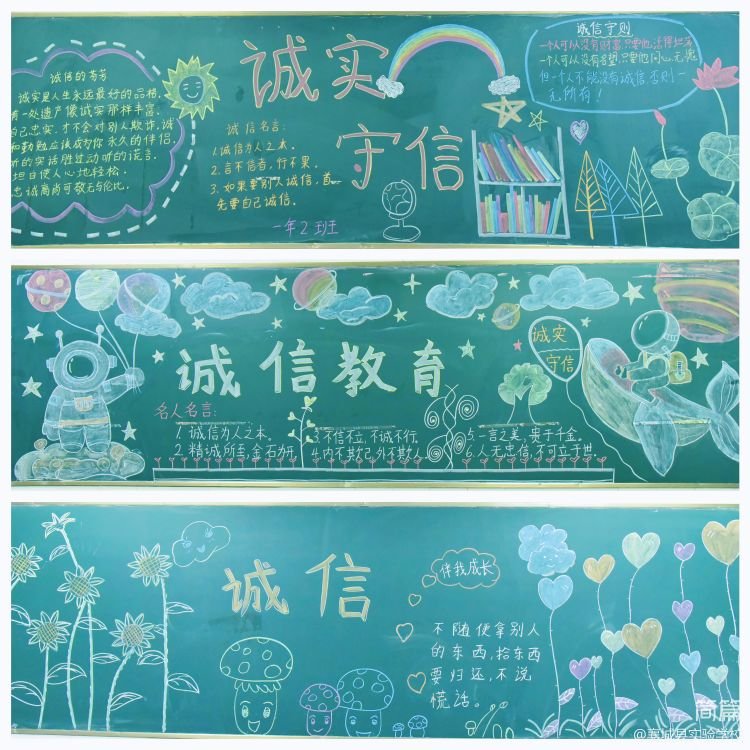 诚信的芳芳
诚实是人生永远最好的品格.
有一处遗产像诚实那样丰富.
自己忠实.才不会对别人欺诈.诚
和勤勉应该成为你永久的伴侣
听的实话胜过动听的谎言.
坦白使人心地轻松.
忠诚高尚可敬无与伦比.
诚实
守信
诚信名言:
1.诚信为人之本.
2.言不信者,行不果.
3.如果要别人诚信,首
先要自己诚信.
一年2班
诚信守则
一个人可以没有财富.只要他.活得坦荡
一个人可以没有名望.只要他问心无愧
但一个人不能没有诚信,否则一
无所有!
诚信教育
诚实
守信
名人名言:
1.诚信为人之本.
2.精诚所至,金石为开.
3.不信不立,不诚不行.
4.内不欺己,外不欺人.
5.一言之美,贵于千金.
6.人无忠信,不可立于世.
诚信
伴我成长
不随便拿别人
的东西,拾东西
要归还,不说
慌话。
简篇
@襄城县实验学校